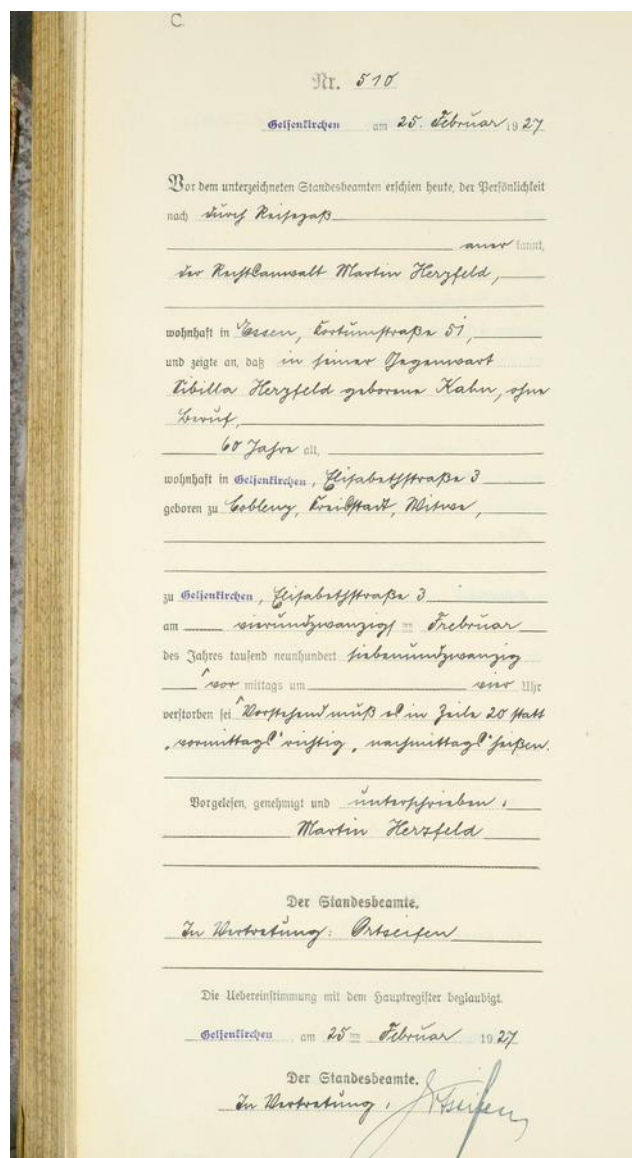 C.
Nr. 510
Gelsenkirchen am 25. Februar 1927
Vor dem unterzeichneten Standesbeamten erschien heute, der Persönlichkeit
nach durch Reisepaß
anerkannt,
der Rechtsanwalt Martin Herzfeld,
wohnhaft in Essen, Kortumstraße 51,
und zeigte an, daß in seiner Gegenwart
Sibilla Herzfeld geborene Kahn, ohne
Beruf,
60 Jahre alt,
wohnhaft in Gelsenkirchen, Elisabethstraße 3
geboren zu Coblenz, Kreisstadt, Witwe,
zu Gelsenkirchen, Elisabethstraße 3
am vierundzwanzigsten Februar
des Jahres tausend neunhundert siebenundzwanzig
vor mittags um vier Uhr
verstorben sei Vorstehend muß es in Zeile 20 statt
„vormittags" richtig „nachmittags" heißen.
Vorgelesen, genehmigt und unterschrieben.
Martin Herzfeld
Der Standesbeamte.
In Vertretung: Ortseifen
Die Uebereinstimmung mit dem Hauptregister beglaubigt.
Gelsenkirchen, am 25 ten Februar 1927
Der Standesbeamte.
In Vertretung: Ortseifen